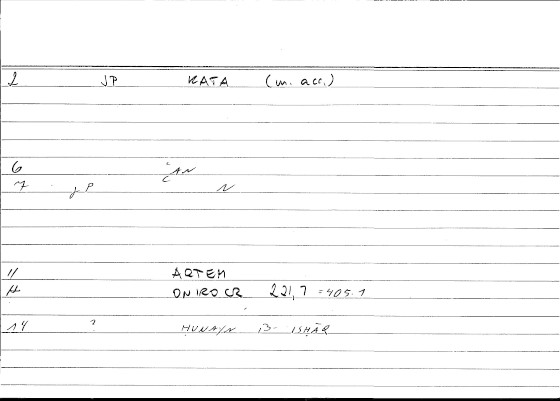 2 JP KATA (m. acc.)
6 ʿAN
7 JP N
11 ARTEM
12 ONIROCR 221,7 = 405.1
14 ? ḤUNAYN B. ISḤĀQ